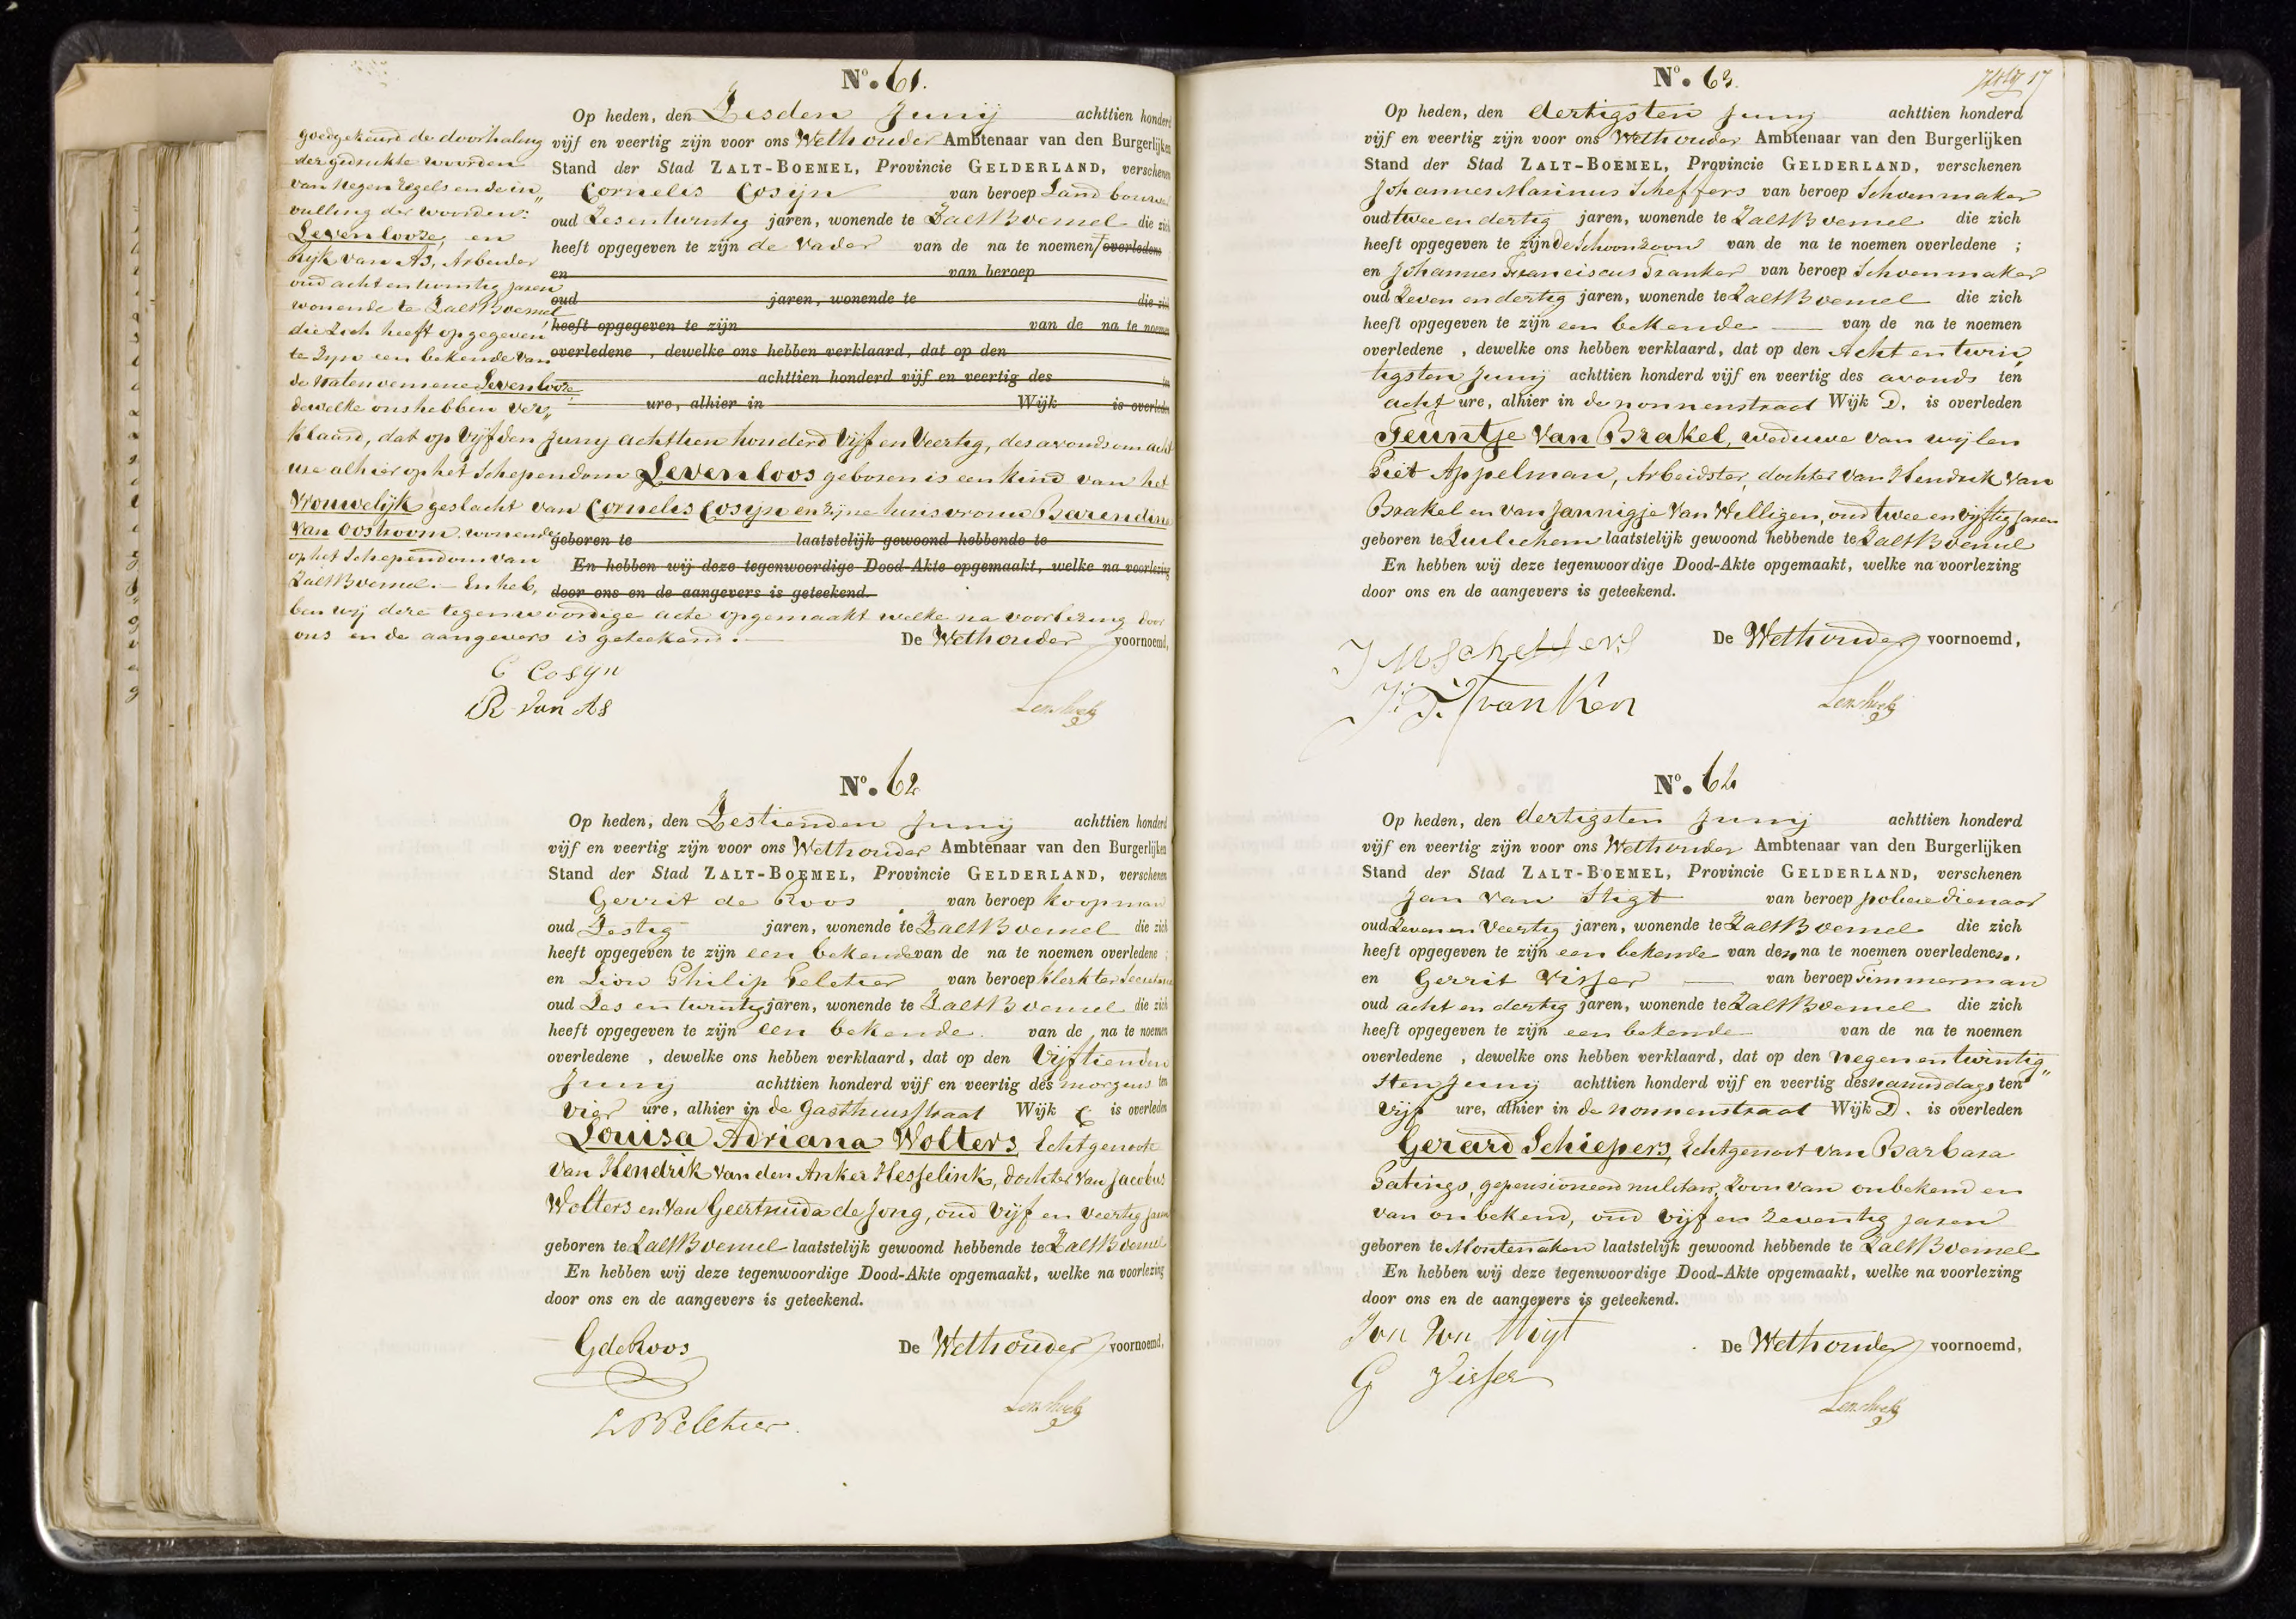 No. 61.
Op heden, den Zesden Junij achttien honderd
vijf en veertig zijn voor ons Wethouder Ambtenaar van den Burgerlijken
Stand der Stad ZALT-BOEMEL, Provincie GELDERLAND, verschenen
Cornelis Cosijn van beroep Landbouwer
oud Zes en twintig jaren, wonende te ZaltBoemel die zich
heeft opgegeven te zijn de Vader van de na te noemen overledene
en van beroep
oud jaren, wonende te die zich
heeft opgegeven te zijn van de na te noemen
overledene , dewelke ons hebben verklaard, dat op den
achttien honderd vijf en veertig des ten
ure, alhier in Wijk is overleden
goedgekeurd de doorhaling
der gedrukte woorden
van Negen Regels en de in„
vulling der woorden:
Levenlooze, en
Rijk van As, Arbeider
oud acht en twintig jaren
wonende te ZaltBoemel
die zich heeft opgegeven
te zijn een bekende van
de natenoemene Levenlooze,
dewelke ons hebben ver„
klaard, dat op Vijfden Junij achttien honderd Vijf en Veertig, des avonds om acht
ure alhier op het Schependom Levenloos geboren is een kind van het
Vrouwelijk geslacht van Cornelis Cosijn en zijne huisvrouw Barendina
van Oostroom wonende
op het Schependom van
ZaltBoemel. — En heb„
geboren te laatstelijk gewoond hebbende te
En hebben wij deze tegenwoordige Dood-Akte opgemaakt, welke na voorlezing
door ons en de aangevers is geteekend.
ben wij deze tegenwoordige acte opgemaakt welke na voorlezing door
ons en de aangevers is geteekend.
De Wethouder voornoemd,
C Cosyn
R van As
No. 62
Op heden, den Zestienden Junij achttien honderd
vijf en veertig zijn voor ons Wethouder Ambtenaar van den Burgerlijken
Stand der Stad ZALT-BOEMEL, Provincie GELDERLAND, verschenen
Gerrit de Roos van beroep Koopman
oud Zestig jaren, wonende te ZaltBoemel die zich
heeft opgegeven te zijn een bekende van de na te noemen overledene ;
en Lion Philip Peletier van beroep Klerk ter Secretarie
oud Zes en twintig jaren, wonende te ZaltBoemel die zich
heeft opgegeven te zijn een bekende van de na te noemen
overledene , dewelke ons hebben verklaard, dat op den Vijftienden
Junij achttien honderd vijf en veertig des morgens ten
Vier ure, alhier in de Gasthuisstraat Wijk C. is overleden
Louisa Adriana Wolters, Echtgenoote
van Hendrik van den Anker Hesselink, dochter van Jacobus
Wolters en van Geertruida de Jong, oud Vijf en Veertig jaren
geboren te ZaltBoemel laatstelijk gewoond hebbende te ZaltBoemel
En hebben wij deze tegenwoordige Dood-Akte opgemaakt, welke na voorlezing
door ons en de aangevers is geteekend.
De Wethouder voornoemd,
GdeRoos
No. 63.
17
Op heden, den dertigsten Junij achttien honderd
vijf en veertig zijn voor ons Wethouder Ambtenaar van den Burgerlijken
Stand der Stad ZALT-BOEMEL, Provincie GELDERLAND, verschenen
Johannes Marinus Scheffers van beroep Schoenmaker
oud twee en dertig jaren, wonende te ZaltBoemel die zich
heeft opgegeven te zijn de Schoonzoon van de na te noemen overledene ;
en Johannes Franciscus Franken van beroep Schoenmaker
oud Zeven en dertig jaren, wonende te ZaltBoemel die zich
heeft opgegeven te zijn een bekende van de na te noemen
overledene , dewelke ons hebben verklaard, dat op den Acht en twin„
tigsten Junij achttien honderd vijf en veertig des avonds ten
acht ure, alhier in de nonnenstraat Wijk D. is overleden
Teuntje van Brakel, weduwe van wijlen
Piet Appelman, Arbeidster, dochter van Hendrik van
Brakel en van Jannigje van Willigen, oud twee en vijftig jaren
geboren te Zuilichem laatstelijk gewoond hebbende te ZaltBoemel
En hebben wij deze tegenwoordige Dood-Akte opgemaakt, welke na voorlezing
door ons en de aangevers is geteekend.
De Wethouder voornoemd,
J M Scheffers
J. F. Franken
No. 64
Op heden, den dertigsten Junij achttien honderd
vijf en veertig zijn voor ons Wethouder Ambtenaar van den Burgerlijken
Stand der Stad ZALT-BOEMEL, Provincie GELDERLAND, verschenen
Jan van Stigt van beroep policiedienaar
oud Zeven en Veertig jaren, wonende te ZaltBoemel die zich
heeft opgegeven te zijn een bekende van den na te noemen overledenen,
en Gerrit Visser van beroep Timmerman
oud acht en dertig jaren, wonende te ZaltBoemel die zich
heeft opgegeven te zijn een bekende van de na te noemen
overledene , dewelke ons hebben verklaard, dat op den negen en twintig„
sten Junij achttien honderd vijf en veertig des namiddags ten
Vijf ure, alhier in de nonnenstraat Wijk D. is overleden
Gerard Schiepers, Echtgenoot van Barbara
Patings, gepensioneerd militair, Zoon van onbekend en
van onbekend, oud Vijf en Zeventig jaren
geboren te Montenaken laatstelijk gewoond hebbende te ZaltBoemel
En hebben wij deze tegenwoordige Dood-Akte opgemaakt, welke na voorlezing
door ons en de aangevers is geteekend.
De Wethouder voornoemd,
Jan van Stigt
G Visser